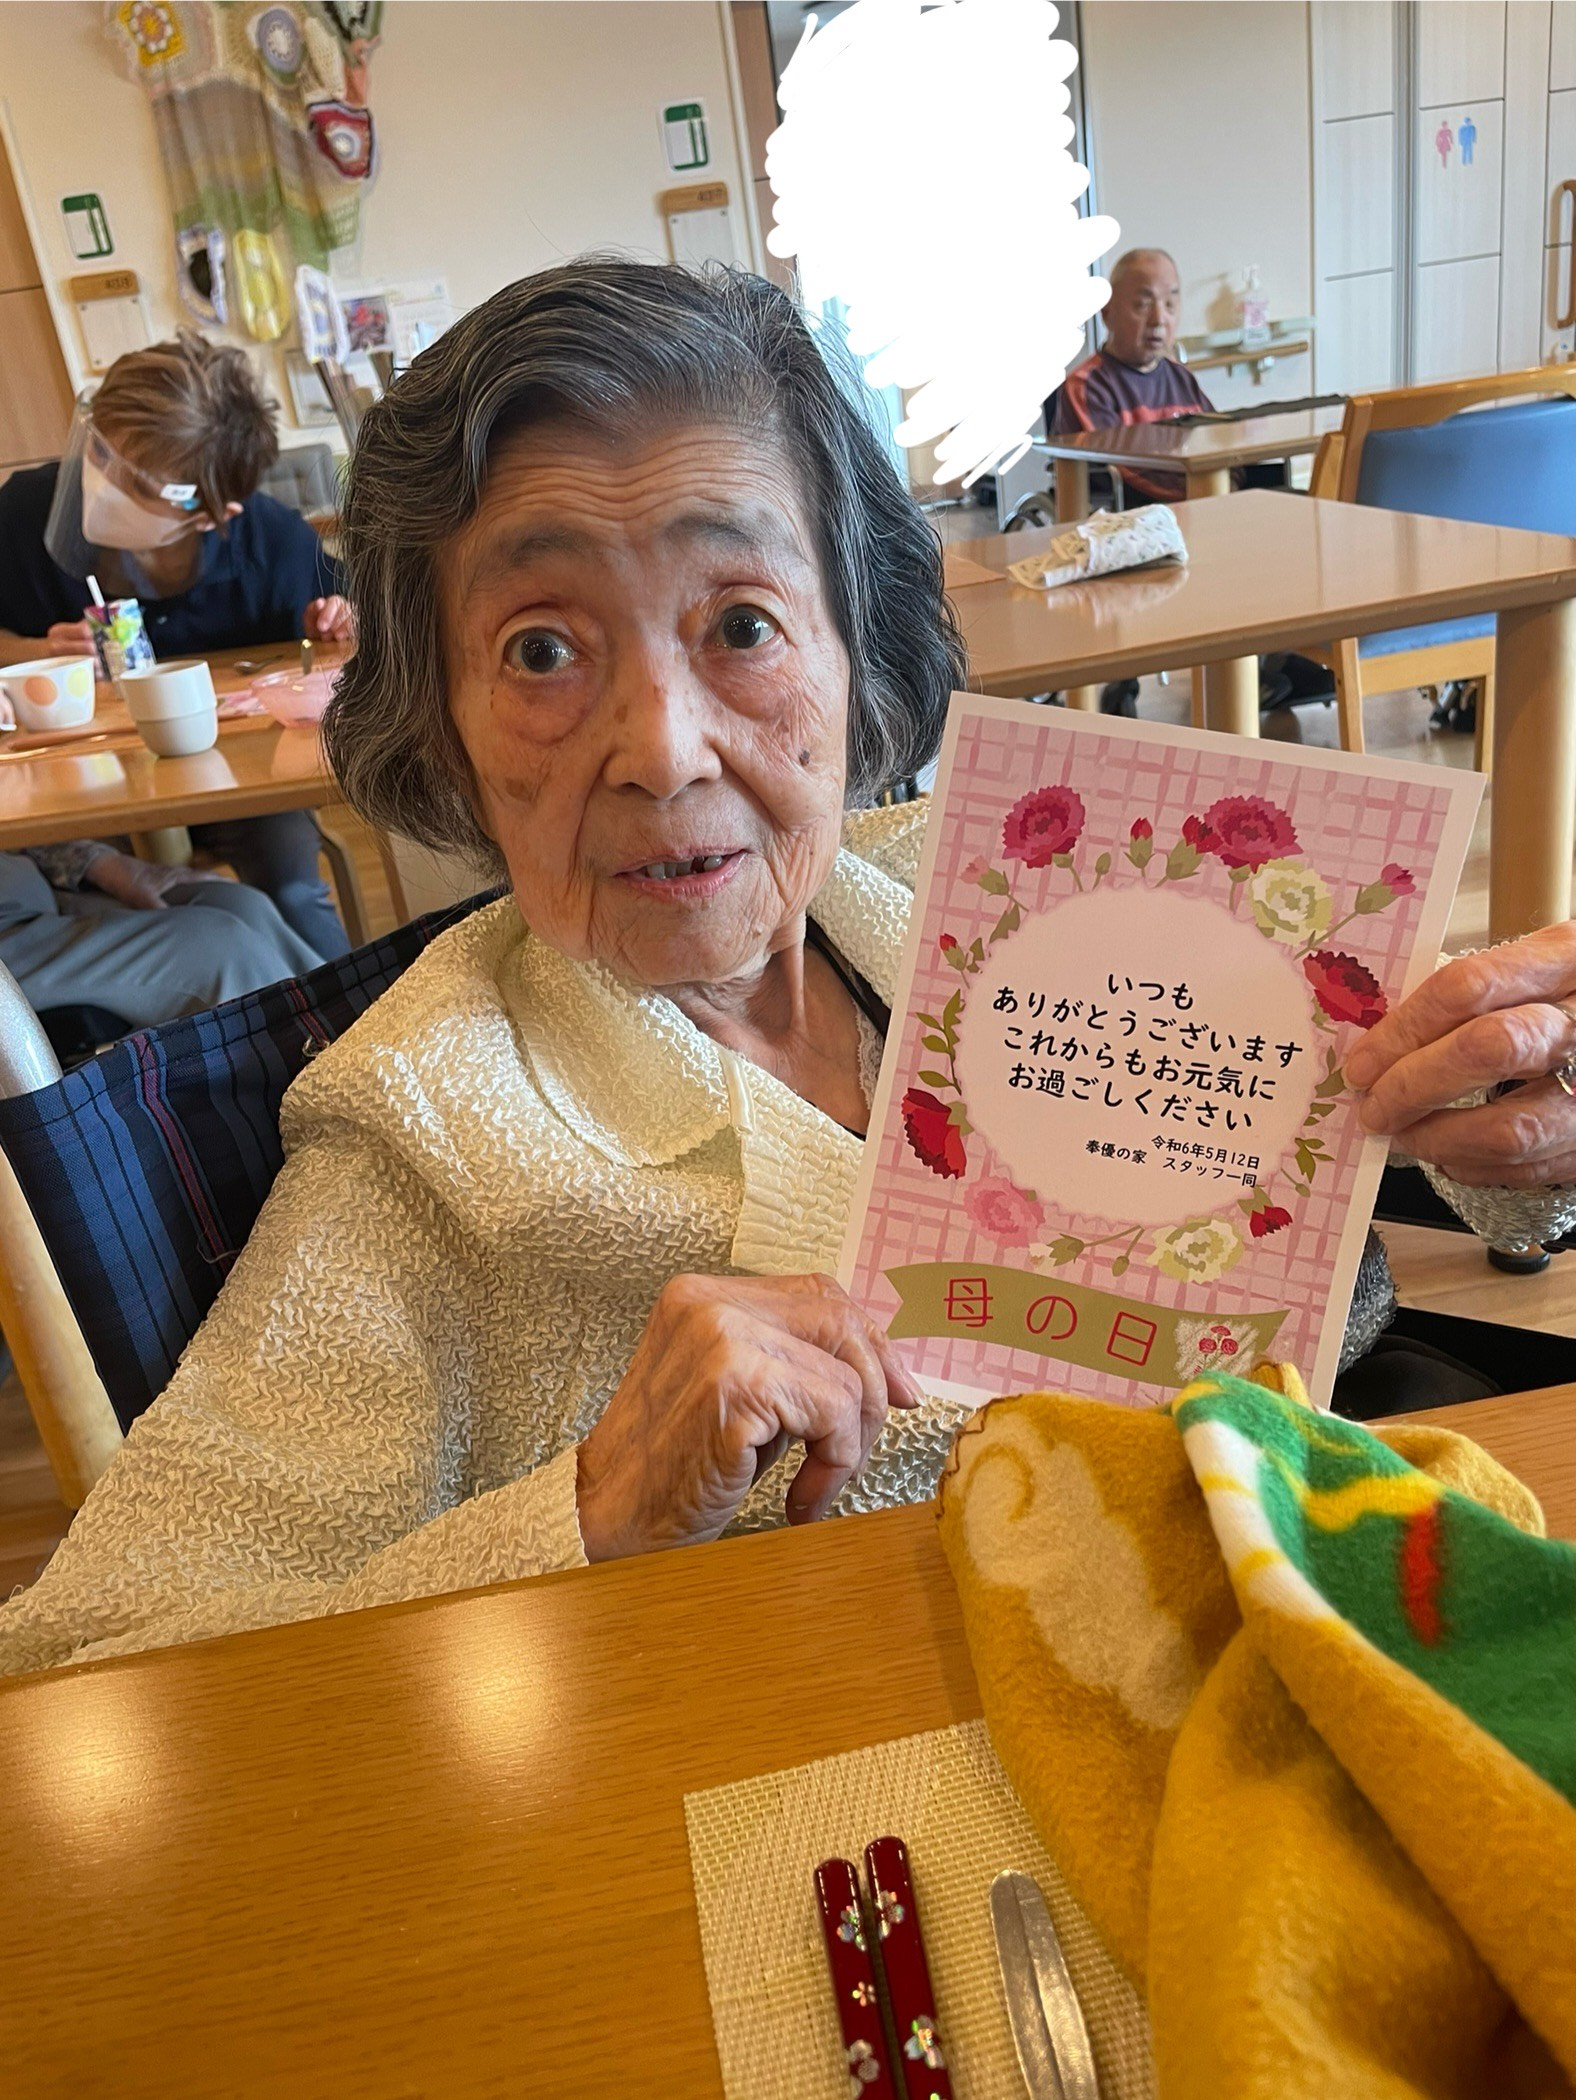 いつも
ありがとうございます
これからもお元気に
お過ごしください
令和6年5月12日
奉優の家 スタッフ一同
母の日